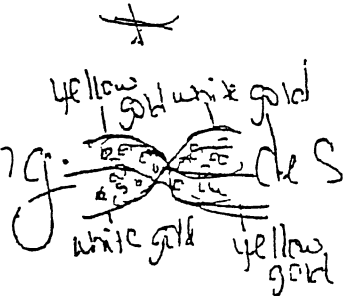 yellow gold white gold
des
white gold yellow gold